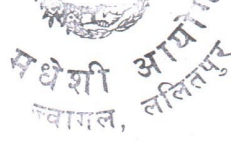 मधेशी आयोग
ललितपुर